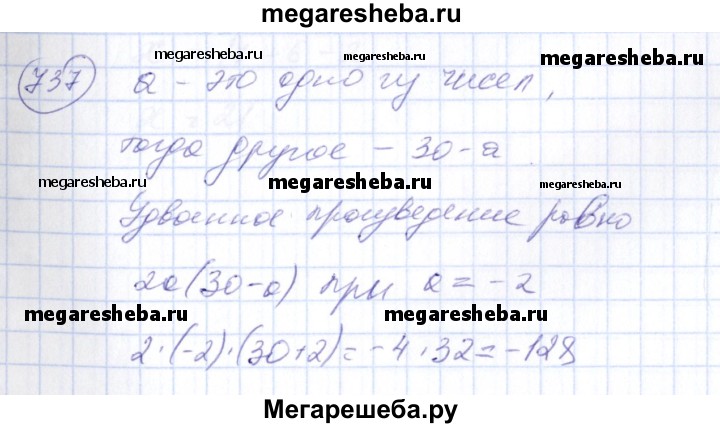 megaresheba.ru
megaresheba.ru megaresheba.ru megaresheba.ru
737 a - это одно из чисел,
тогда другое - 30-a
megaresheba.ru megaresheba.ru megaresheba.ru
Удвоенное произведение равно
2a(30-a) при a = -2
megaresheba.ru megaresheba.ru megaresheba.ru
2·(-2)·(30+2)=-4·32=-128
Мегарешеба.ру